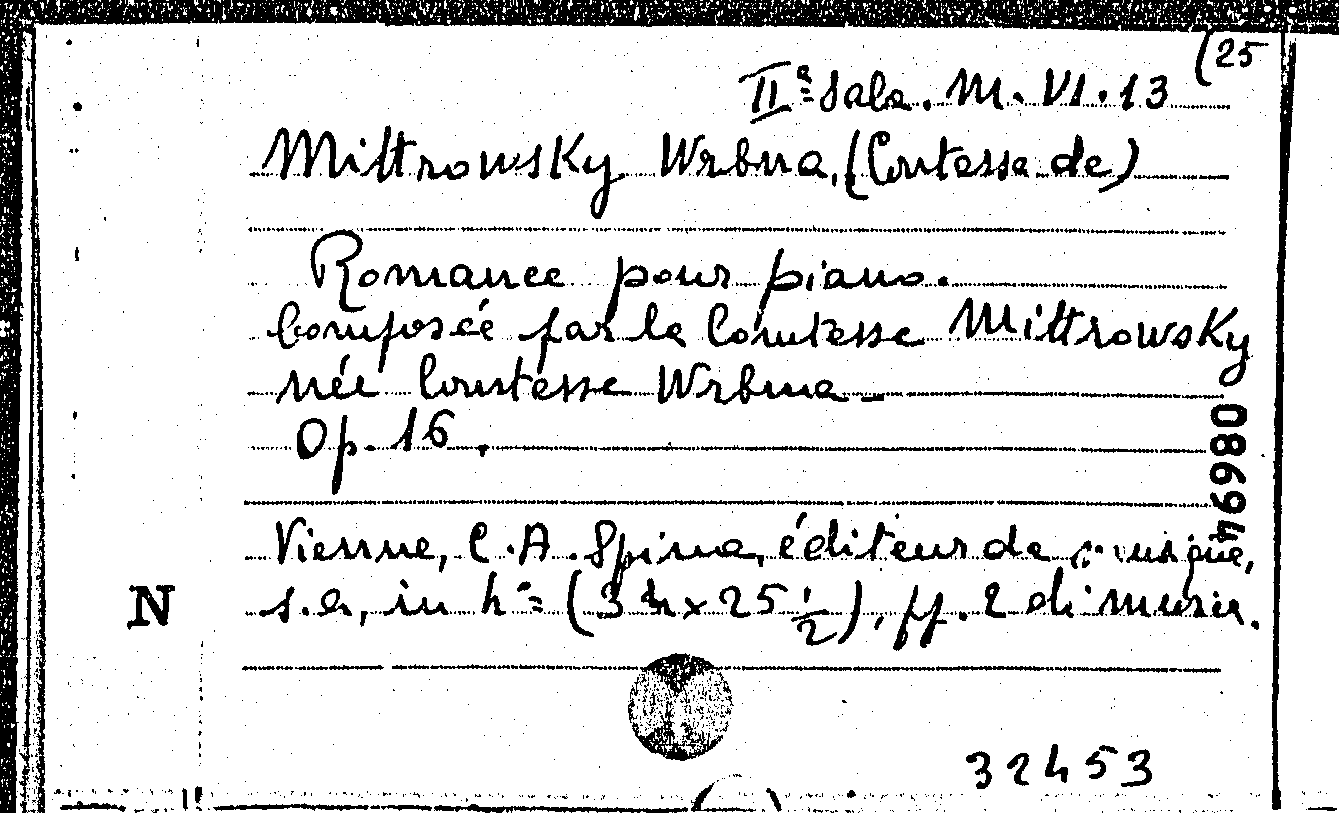 (25
IIª Sala. M. VI. 13
Mittrowsky Wrbna, (Contesse de)
Romance pour piano.
Composée par la Comtesse Mittrowsky
née Comtesse Wrbna -
Op. 16.
086994
Vienne, C. A. Spina, éditeur de musique,
N
s.a., in 4º (34 x 25 1/2), ff. 2 di music.
32453